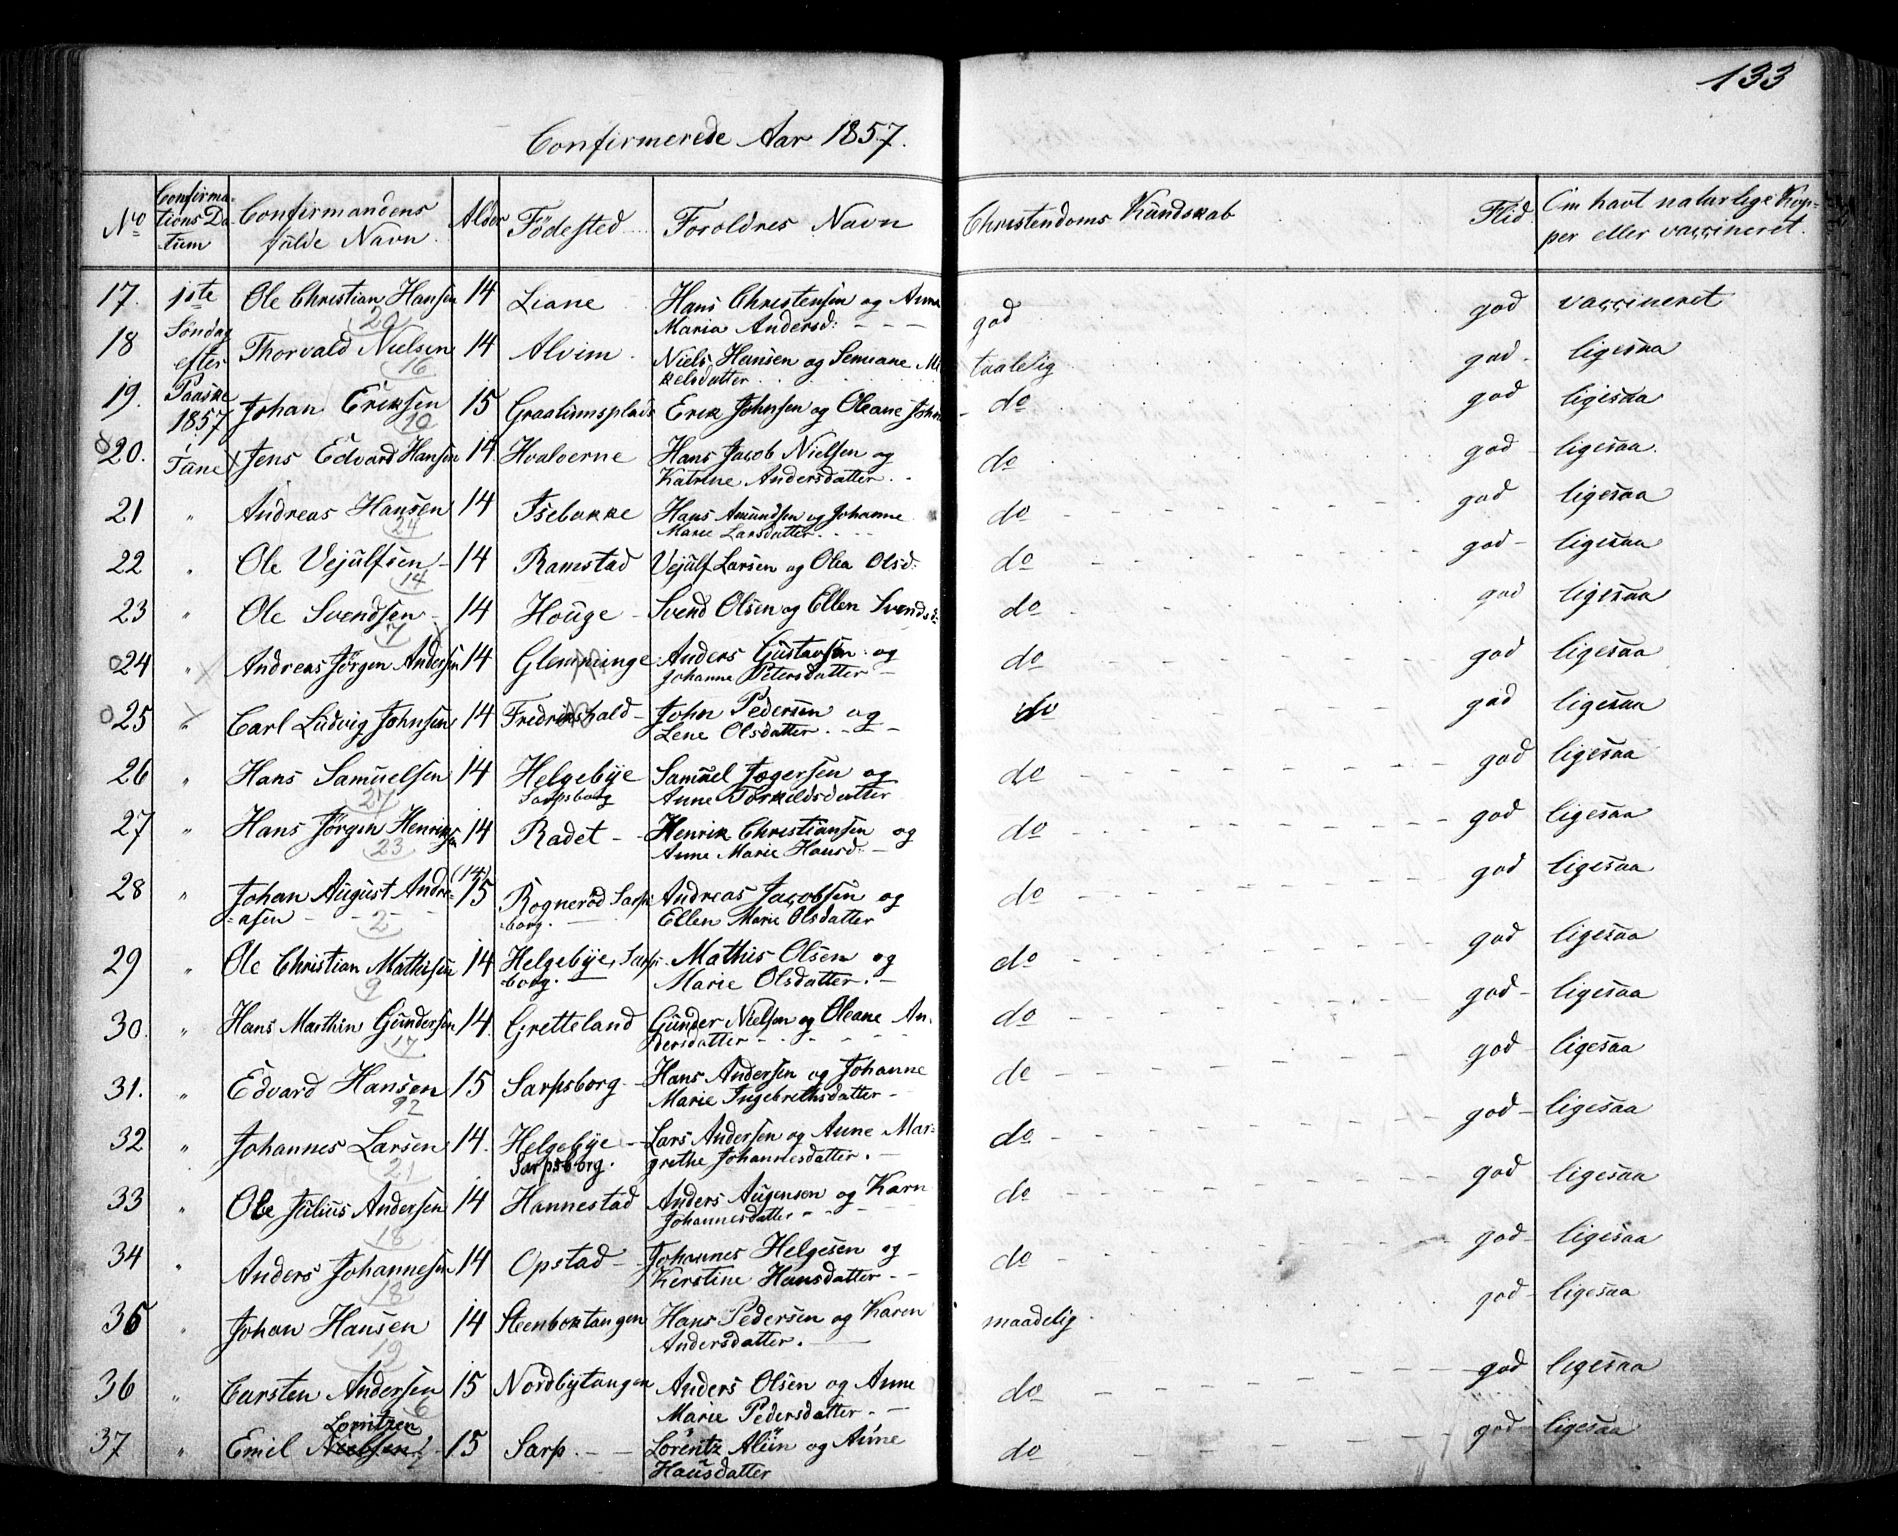 133
Confirmerede Aar 1857.
No Confirma-tions Da-tum Confirmandens fulde Navn Alder Fødested Foroldres Navn Christendoms Kundskab Flid Om havt naturlige Kop-per eller vaccineret.
17. 1ste Ole Christian Hansen 14 Liane Hans Christensen og Anne god god vaccineret
20 Maria Andersd:
18 Søndag efter Thorvald Nielsen 14 Alvim Niels Hansen og Semiane Mi- taalelig god ligesaa
16 kelsdatter
19. Paaske 1857 Johan Eriksen 15 Graatumsplads Erik Johnsen og Oleane John do god ligesaa
10
20. i Tune Jens Edvard Hansen 14 Hvaloerne Hans Jacob Nielsen og do god ligesaa.
Katrine Andersdatter
21 " Andreas Hansen 14 Isebakke Hans Amundsen og Johanne do god ligesaa
24 Marie Larsdatter
22 " Ole Vejulfsen 14 Ramstad Vejulf Larsen og Olea Olsd: do god ligesaa
14
23 " Ole Svendsen 14 Houge Svend Olsen og Ellen Svendsd: do god ligesaa
7
24 " Andreas Jørgen Andersen 14 Glemminge Anders Gustavsen og do god ligesaa
Johanne Petersdatter
25 " Carl Ludvig Johnsen 14 Fredrikshald John Pedersen og do god ligesaa
Lene Olsdatter
26 " Hans Samuelsen 14 Helgebye Samuel Jogersen og do god ligesaa
27 Sarpsborg Anne Torkildsdatter
27 " Hans Jørgen Henriksen 14 Radet Henrik Christiansen og do god ligesaa
23 Anne Marie Hansd:
28 " Johan August Andre- (14) 15 Rognerød Sarps Andreas Jacobsen og do god ligesaa
asen 2 borg. Ellen Marie Olsdatter
29 " Ole Christian Mathisen 14 Helgebye, Sarps Mathis Olsen og do god ligesaa
9 borg. Marie Olsdatter
30. " Hans Marthin Gundersen 14. Gretteland Gunder Nielsen og Oleane An- do god ligesaa
17 dersdatter
31. " Edvard Hansen 15 Sarpsborg Hans Andersen og Johanne do god ligesaa
92 Marie Ingebrethsdatter
32 " Johannes Larsen 14. Helgebye Lars Andersen og Anne Mar- do god ligesaa
21 Sarpsborg. grethe Johannesdatter.
33 " Ole Julius Andersen 14 Hannestad Anders Augensen og Karn do god ligesaa
18 Johannesdatter
34 " Anders Johannesen 14 Opstad Johannes Helgesen og do god ligesaa
18 Kerstine Hansdatter
35 " Johan Hansen 14 Steenboktangen Hans Pedersen og Karen maadelig god ligesaa
19 Andersdatter.
36 " Carsten Andersen 15 Nordbytangen Anders Olsen og Anne do god ligesaa
6 Marie Pedersdatter
Loritzen
37 " Emil Nielsen 15 Sarp. Lorentz Aliin og Anne do god ligesaa
Hansdatter